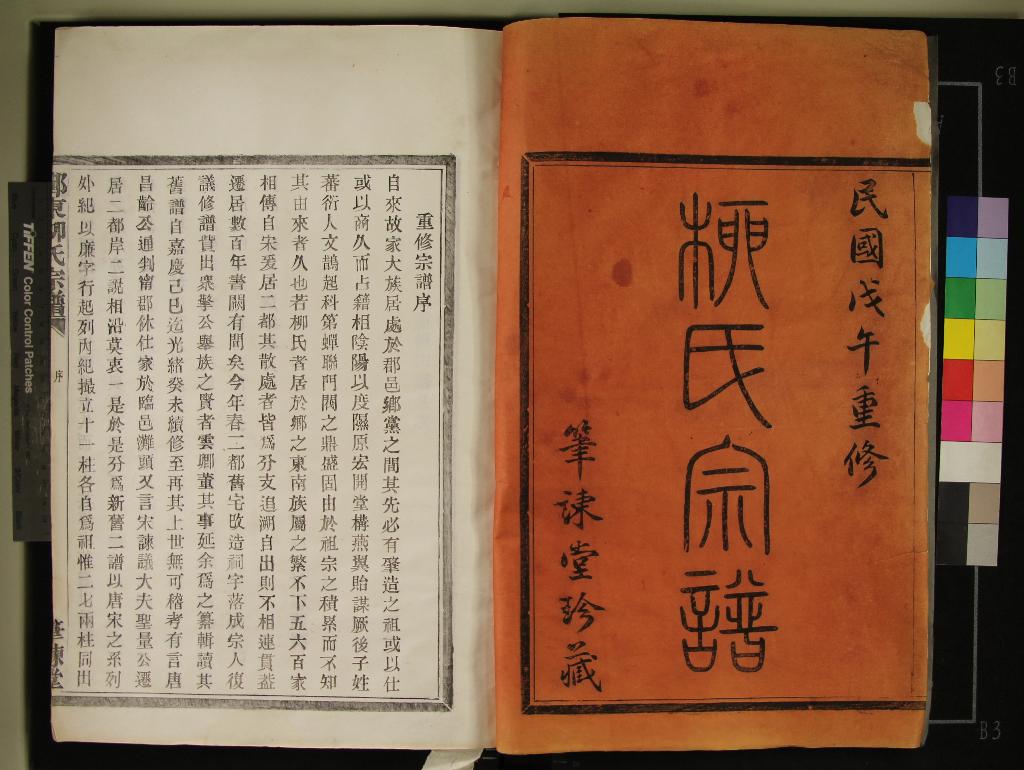 民國戊午重修
柳氏宗譜
筆諫堂珍藏
重修宗譜序
自來故家大族居處於郡邑鄉黨之間其先必有肇造之祖或以仕
或以商久而占籍相陰陽以度隰原宏開堂構燕翼貽謀厥後子姓
蕃衍人文鵲起科第蟬聯門閥之鼎盛固由於祖宗之積累而不知
其由來者久也若柳氏者居於鄉之東南族屬之繁不下五六百家
相傳自宋爰居二都其散處者皆爲分支追溯自出則不相連貫蓋
遷居數百年書闕有間矣今年春二都舊宅改造祠宇落成宗人復
議修譜貲出衆擎公舉族之賢者雲卿董其事延余爲之纂輯讀其
舊譜自嘉慶己巳迄光緒癸未續修至再其上世無可稽考有言唐
昌齡公通判甯郡休仕家於臨邑灘頭又言宋諫議大夫聖量公遷
居二都岸二說相沿莫衷一是於是分爲新舊二譜以唐宋之系列
外紀以廉字行起列內紀撮立十一桂各自爲祖惟二七兩桂同出
鄞東柳氏宗譜
序
筆諫堂
TIFFEN Color Control Patches
B3
B3